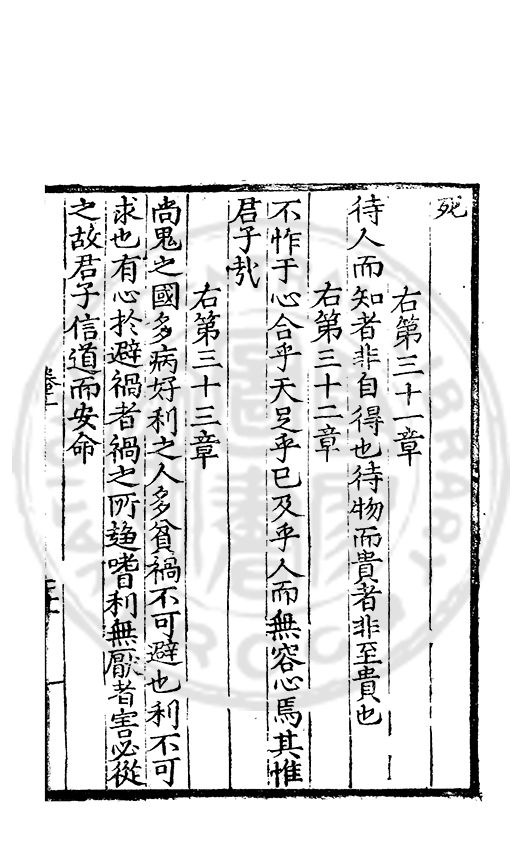 死
右第三十一章
待人而知者非自得也待物而貴者非至貴也
右第三十二章
不怍于心合乎天足乎已及乎人而無容心焉其惟
君子哉
右第三十三章
尚鬼之國多病好利之人多貧禍不可避也利不可
求也有心於避禍者禍之所趨嗜利無厭者害必從
之故君子信道而安命